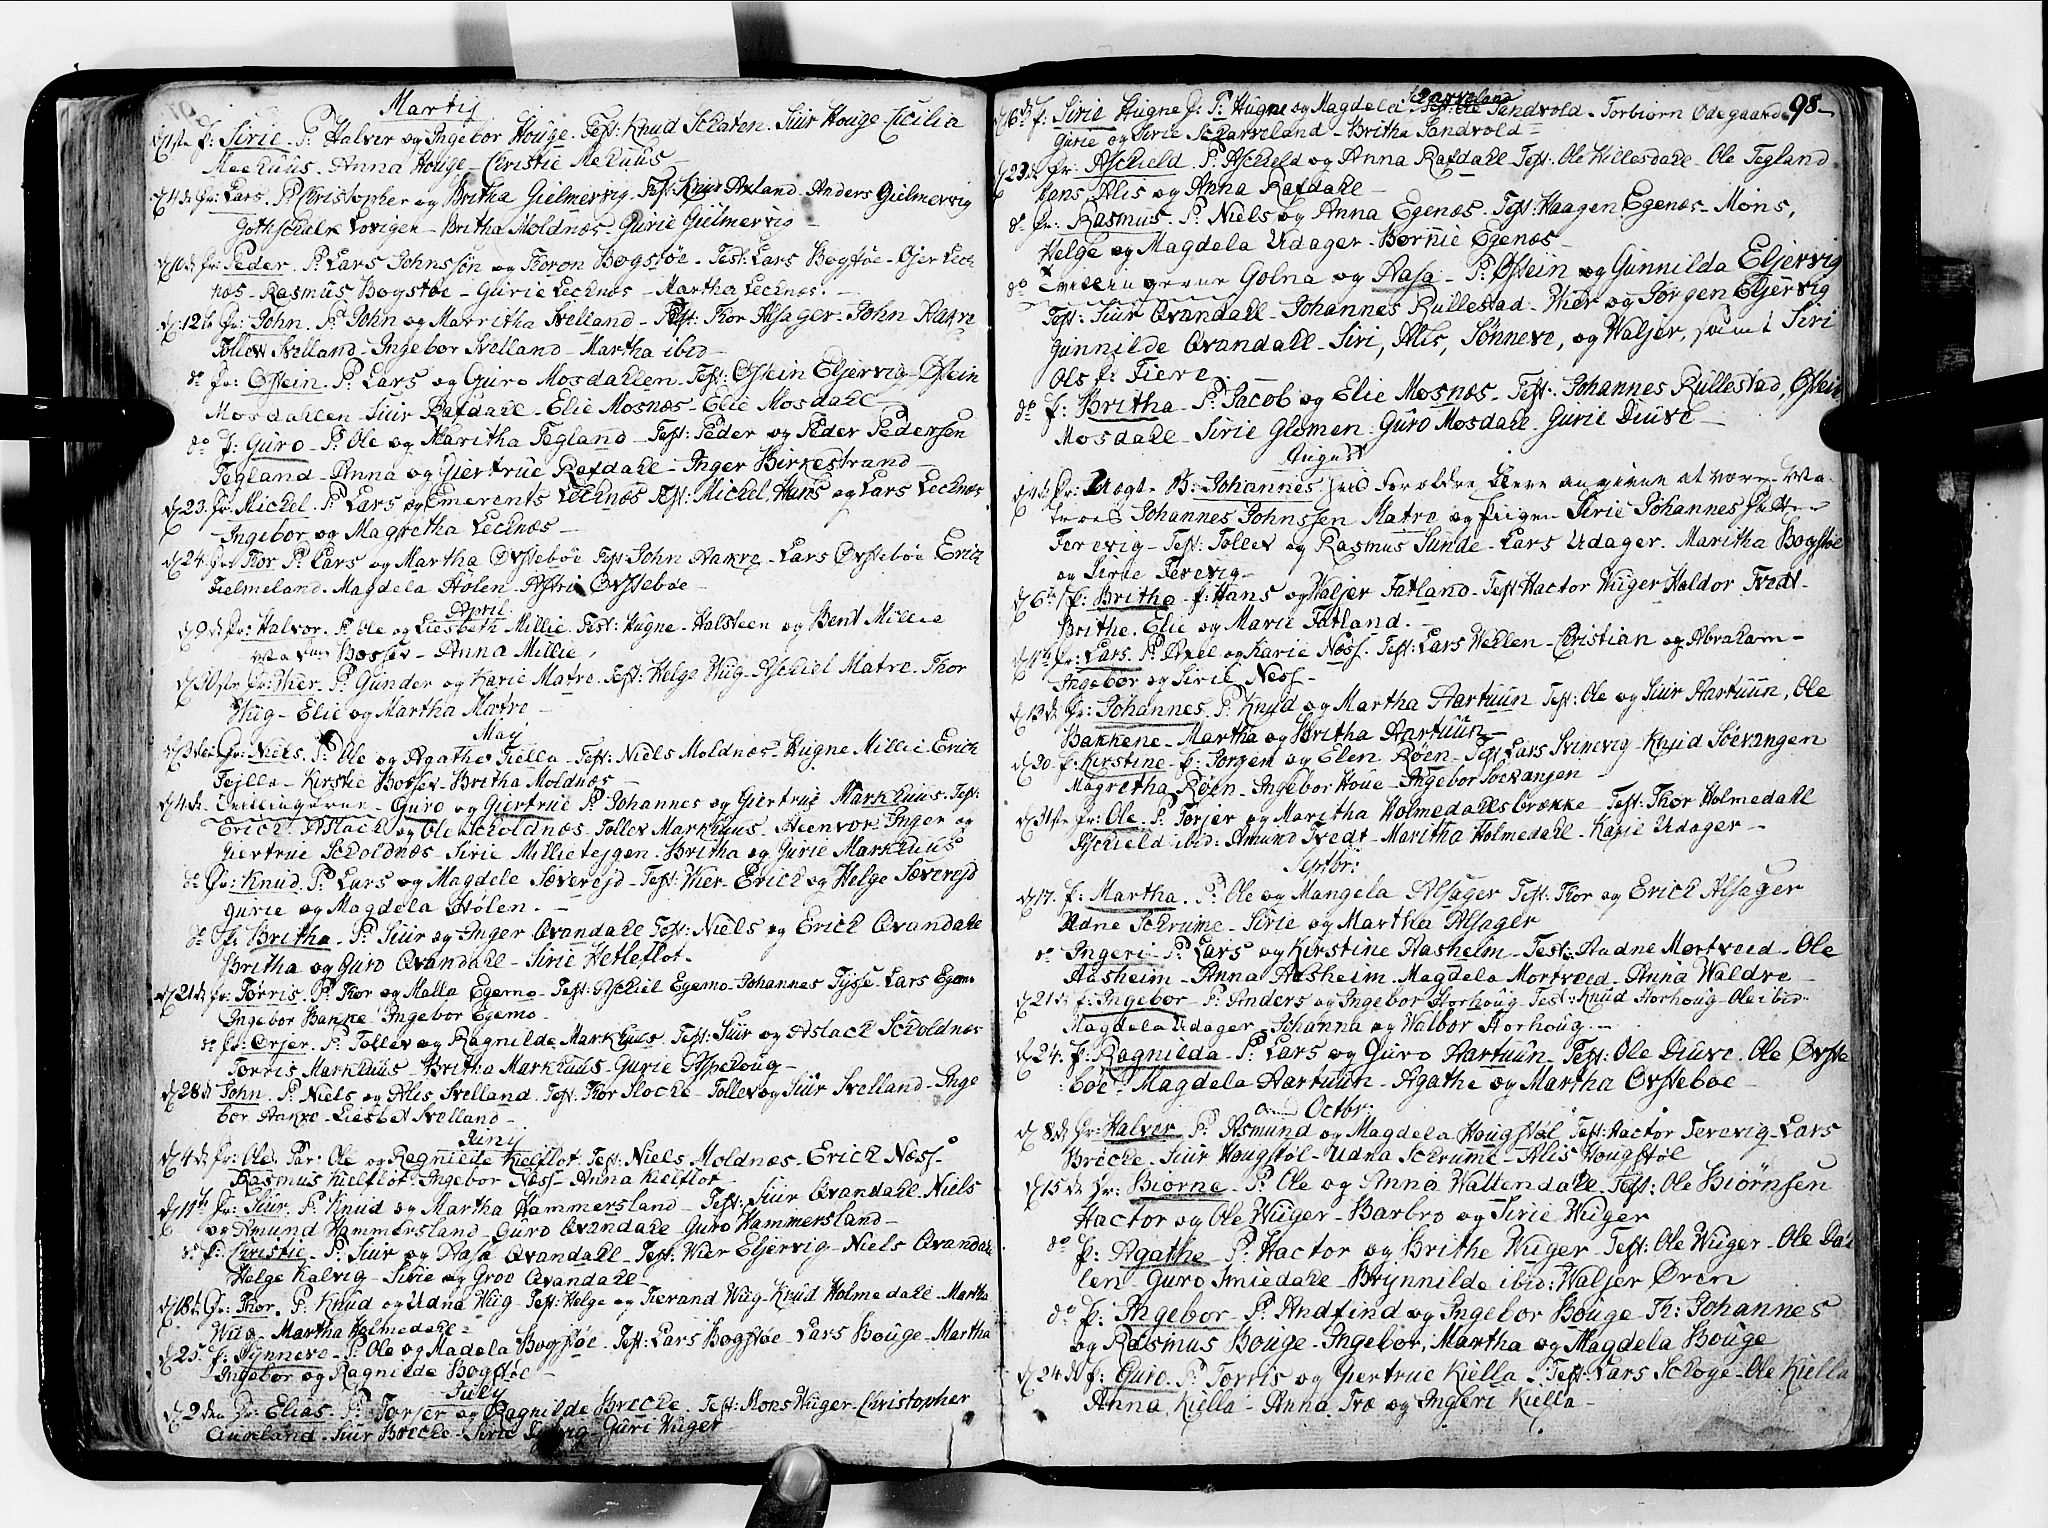 Martij
d. 1ste p: Sirie. P: Halver og Ingebor Houge. Test: Knud Schaten. Siur Houge. Cicilia
Meehuus. Anna Houge. Christie Mehuus
d. 4de dr: Lars. P: Christopher og Britha Gielmervig. Test: Knud Axland. Anders Gielmervig
Gothschalk Lovigen. Britha Moldnæs. Gurie Gielmervig
d. 10de dr: Peder. P: Lars Johnssøn og Thoron Bogstøe. Test: Lars Bogstøe. Lech
næs. Rasmus Bogstøe. Gurie Lechnæs. Martha Lechnæs.
d. 12te dr: John. P: John og Marritha Svelland. Test: Thor Alsager. John
Tollev Svelland. Ingebor Svelland. Martha ibid
do dr: Østein. P: Lars og Guro Mosdahlen. Test: Østein Eljervig. Østein
Mosdahlen. Siur Rafdahl. Elie Mosnæs. Elie Mosdahl
do p: Guro. P: Ole og Maritha Tegland. Test: Peder og Peder Pedersen
Tegland. Anna og Giertrue Rafdahl. Inger Birkestrand
d. 23. dr: Michel. P: Lars og Emerents Lechnæs Test: Michel, Hans og Lars Lechnæs
Ingebor og Magretha Lechnæs
d. 24. dr: Thor. P: Lars og Martha Øvstebøe Test: John Aakre. Lars Øvstebøe Erich
Tielmeland. Magdela Hølen. Astri Øvstebøe
April.
d. 9de dr: Halvor. P: Ole og Liesbeth Millie. Test: Hugne. Halsteen og Bent Millie
Bosser. Anna Millie,
d. 30ste dr: Wier. P: Gunder og Karie Matre. Test: Helge Wug. Aschiel Matre. Thor
Wug. Elie og Martha Matre
Maj
d. 3die dr: Niels. P: Ole og Agathe Fiella. Test: Niels Moldnæs. Hugne Millie. Erich
Fejlla. Kirstie Bosser. Britha Moldnæs
d. 4de Tvillingerne Guro og Giertrue P: Johannes og Giertrue Markhuus. Test:
Erich, Aslach og Ole Scholdnæs. Tollev Markhuus. Steenvor. Inger og
Giertrue Scholdnæs. Sirie Millietejgen. Britha og Gurie Markhuus
do dr: Knud. P: Lars og Magdele Sæverejd. Test: Wier. Erich og Helge Sæverejd
Gurie og Magdela Hølen.
do p: Britha. P: Siur og Inger Qvandahl Test: Niels og Erich Qvandahl
Britha og Guro Qvandahl. Sirie Hetleflot.
d. 21de dr: Torris. P: Thor og Malla Egemo. Test: Aschiel Egemo. Johannes Tysse. Lars Egemo
Ingebor Bakke. Ingebor Egemo
do dr: Ørjer. P: Tollev og Ragnilde Markhuus Test: Siur og Aslach Scholdnæs
Torris Markhuus. Britha Markhuus. Gurie Aspehoug
d. 28de John. P: Niels og Alis Svelland. Test: Thor Flocke. Tollev og Siur Svelland. Inge
bor Aakre. Liesbet Svelland
Junij
d. 4de dr: Ole. Par: Ole og Ragnilde Kielflot. Test: Niels Moldnæs. Erich Næss
Rasmus Kielflot. Ingebor Næss. Anna Kielflot
d. 11te dr: Siur. P: Knud og Martha Hammersland. Test: Siur Qvandahl. Niels
og Amund Hammersland. Guro Qvandahl. Guro Hammersland
do p: Christie. P: Siur og Aasa Qvandahl. Test: Wier Eljervig. Niels Qvandahl
Helge Kalvig. Sirie og Groe Qvandahl
d. 18de dr: Thor. P: Knud og Udna Wug. Test: Helge og Tierand Wug. Knud Holmedahl. Martha
Wug. Martha Holmedahl
d. 25. p: Synneve. P: Ole og Madela Bogstøe. Test: Lars Bogstøe. Lars Bouge. Martha
Ingebor og Ragnilde Bogstøe
July
d. 2den dr: Elias. P: Torjer og Ragnilde Briche. Test: Mons Wuger. Christopher
Aureland. Siur Briche. Sirie Guri Wuger
98.
d. 6te p: Sirie Hugne p: P: Hugne og Magdela Scharveland Test: Ole Sandvold. Torbiørn Ødegaard
Gurie og Sirie Scharveland. Britha Sandvold
d. 23de dr: Aschield. P: Aschield og Anna Rafdahl Test: Ole Hillesdahl. Ole Tegland
Hans, Alis og Anna Rafdahl
do dr: Rasmus. P: Niels og Anna Egenæs. Test: Haagen Egenæs. Mons,
Helge og Magdela Udager. Bernie Egenæs
do Tvillingerne Golna og Aasa. P: Østein og Gunnilda Eljervig
Test: Siur Qvandahl. Johannes Rullestad. Wier og Jørgen Eljervig
Gunnilde Qvandahl. Siri, Alis, Sønneve, og Waljer, samt Siri
Ols p: Tiere
do p: Britha. P: Jacob og Elie Mosnæs. Test: Johannes Rullestad, Østein
Mosdahl. Sirie Glomen. Guro Mosdahl. Gurie Diuve
August
d. 4de dr: Uægte B: Johannes hvis Forældre bleve angivne at være Ma-
Johannes Johnssen Matre og Pigen Sirie Johannes
Terevig. Test: Tollev og Rasmus Sunde. Lars Udager. Maritha Bogstøe
og Sirie Terevig
d. 6te p: Britha. P: Hans og Waljer Tatland. Test Hactor Wuger Haldor Tvedt.
Brithe, Elie og Marie Tatland.
d. 11te dr: Lars. P: Axel og Karie Næss. Test: Lars Wehlen. Christian og Abraham
Ingebor og Sirie Ness
d. 13de dr: Johannes. P: Knud og Martha Aartuun Test: Ole og Siur Aartuun, Ole
Bakkene. Martha og Britha Aartuun
d. 20. p: Kirstine. P: Jørgen og Elen Røen. Test Lars Svinevig. Knud Soevangen
Magretha Røen. Ingebor Houe. Ingebor Soevangen
d. 31ste dr: Ole. P: Torjer og Maritha Holmedahlsbrække. Test: Thor Holmedahl
Aschield ibid: Amund Tvedt. Maritha Holmedahl. Karie Udager
Septbr:
d. 17. p: Martha. P: Ole og Mangela Alsager Test: Thor og Erich Alsager
Udne Schrume. Sirie og Martha Alsager
do Ingeri P: Lars og Kirstine Aasheim. Test: Aadne Mortveed. Ole
Aasheim. Anna Aasheim. Magdela Mortveed. Anna Waldre
d. 21de p: Ingebor. P: Anders og Ingebor Storhoug. Test: Knud Storhoug. Ole ibid.
Magdela Udager. Johanna og Walbor Storhoug.
d. 24. p: Ragnilda. P: Lars og Guro Aartuun. Test: Ole Diuve. Ole Øvste
bøe. Magdela Aartuun. Agathe og Martha Øvstebøe
Octbr:
d. 8de dr: Halver. P: Asmund og Magdela Hougstøl Test: Hactor Terevig. Lars
Briche. Siur Hougstøl. Udna Schrume. Alis Hougstøl
d. 15de dr: Biørne. P: Ole og Anna Wattendahl. Test: Ole Biørnsen
Hactor og Ole Wuger. Barbro og Sirie Wuger
do p: Agathe P: Hactor og Brithe Wuger. Test: Ole Wuger. Ole Da-
len. Guro Smiedahl. Brynnilde ibid: Waljer Øren
do p: Ingebor. P: Andfind og Ingebor Bouge T: Johannes
og Rasmus Bouge. Ingebor, Martha og Magdela Bouge
d. 24de p: Guro. P: Torris og Giertrue Kiella. Test: Lars Schoge. Ole Kiella
Anna Kiella. Anna Træ og Ingleri Kiella